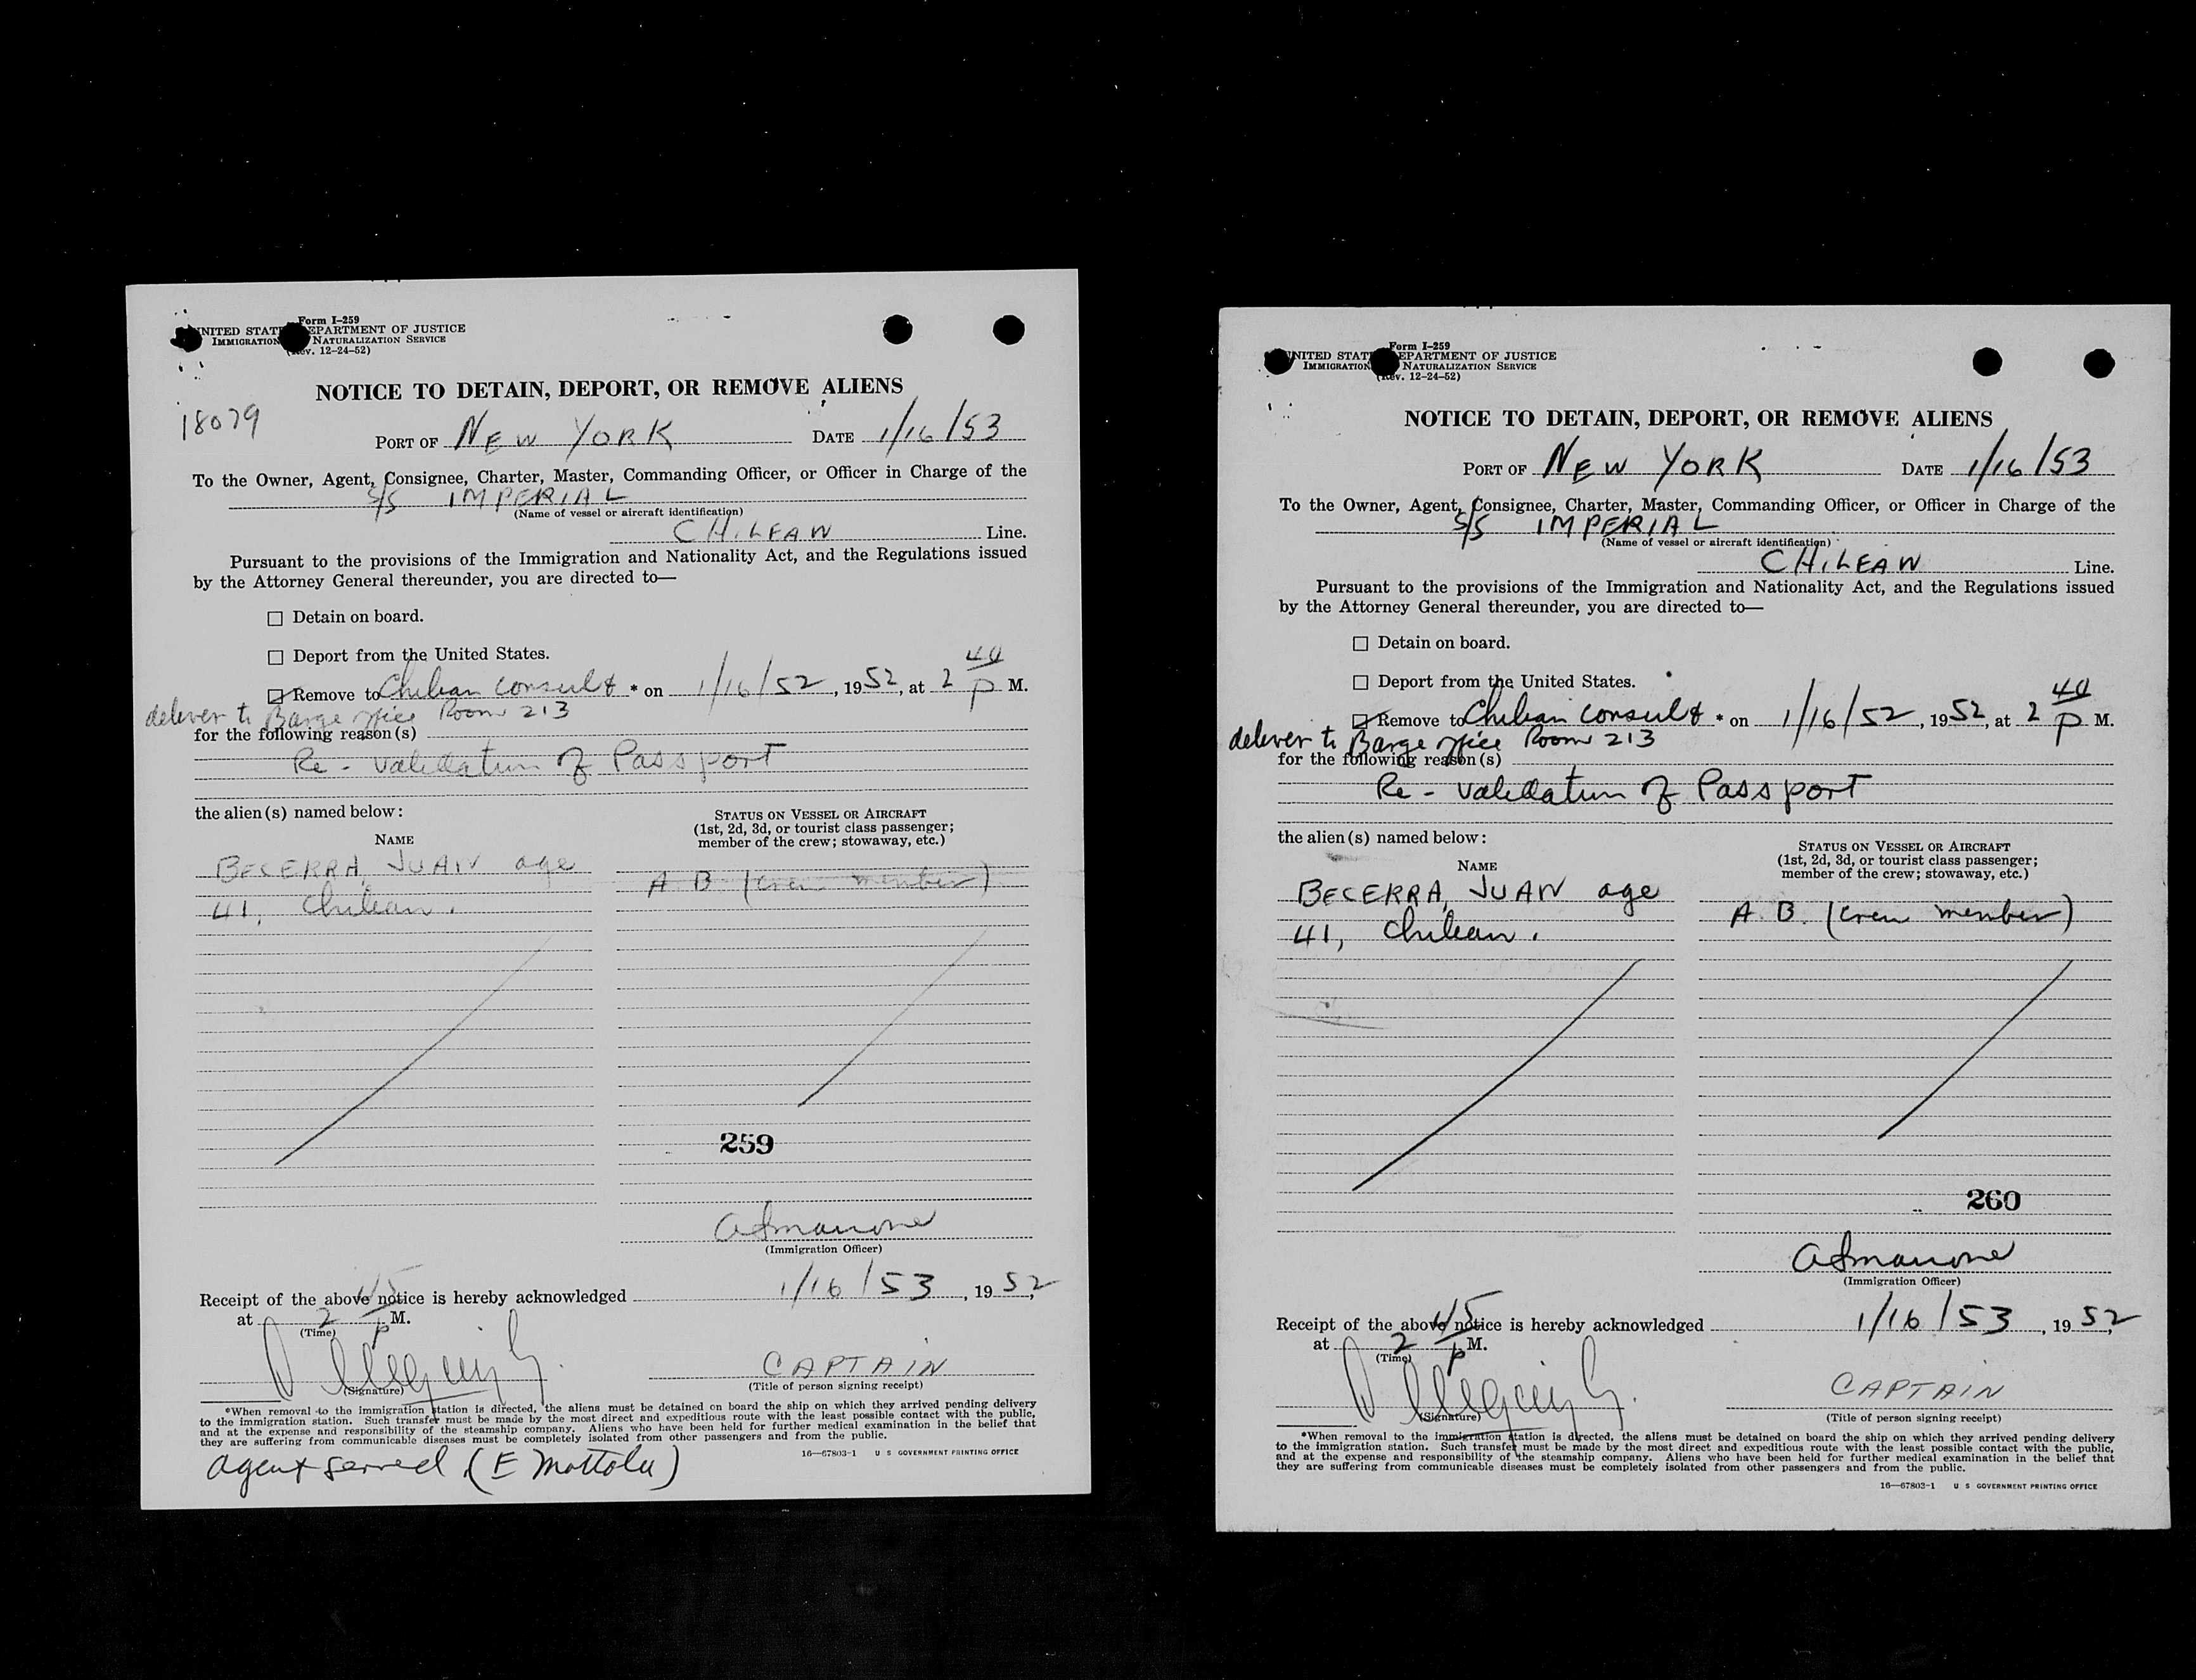 Form I-259
UNITED STAT EPARTMENT OF JUSTICE
IMMIGRATION NATURALIZATION SERVICE
(Rev. 12-24-52)
NOTICE TO DETAIN, DEPORT, OR REMOVE ALIENS
18079
PORT OF NEW YORK DATE 1/16/53
To the Owner, Agent, Consignee, Charter, Master, Commanding Officer, or Officer in Charge of the
S/S IMPERIAL
(Name of vessel or aircraft identification)
CHILEAN Line.
Pursuant to the provisions of the Immigration and Nationality Act, and the Regulations issued
by the Attorney General thereunder, you are directed to—
Detain on board.
Deport from the United States.
Remove to Chilean consult * on 1/16/52, 1952, at 2 40 P M.
deliver to Barge office Room 213
for the following reason(s)
Re-validation of Passport
the alien(s) named below:
NAME
STATUS ON VESSEL OR AIRCRAFT
(1st, 2d, 3d, or tourist class passenger;
member of the crew; stowaway, etc.)
BECERRA, JUAN age
A B (crew member)
41, Chilean.
259
(Immigration Officer)
Receipt of the above notice is hereby acknowledged 1/16/53, 1952,
at 2 45 P M.
(Time)
CAPTAIN
(Signature)
(Title of person signing receipt)
*When removal to the immigration station is directed, the aliens must be detained on board the ship on which they arrived pending delivery
to the immigration station. Such transfer must be made by the most direct and expeditious route with the least possible contact with the public,
and at the expense and responsibility of the steamship company. Aliens who have been held for further medical examination in the belief that
they are suffering from communicable diseases must be completely isolated from other passengers and from the public.
16—67803-1 U S GOVERNMENT PRINTING OFFICE
agent served (E Mottola)
Form I-259
UNITED STAT EPARTMENT OF JUSTICE
IMMIGRATION NATURALIZATION SERVICE
(Rev. 12-24-52)
NOTICE TO DETAIN, DEPORT, OR REMOVE ALIENS
PORT OF NEW YORK DATE 1/16/53
To the Owner, Agent, Consignee, Charter, Master, Commanding Officer, or Officer in Charge of the
S/S IMPERIAL
(Name of vessel or aircraft identification)
CHILEAN Line.
Pursuant to the provisions of the Immigration and Nationality Act, and the Regulations issued
by the Attorney General thereunder, you are directed to—
Detain on board.
Deport from the United States.
Remove to Chilean consult * on 1/16/52, 1952, at 2 40 P M.
deliver to Barge office Room 213
for the following reason(s)
Re-validation of Passport
the alien(s) named below:
NAME
STATUS ON VESSEL OR AIRCRAFT
(1st, 2d, 3d, or tourist class passenger;
member of the crew; stowaway, etc.)
BECERRA, JUAN age
A. B. (crew member)
41, Chilean.
260
(Immigration Officer)
Receipt of the above notice is hereby acknowledged 1/16/53, 1952,
at 2 45 P M.
(Time)
CAPTAIN
(Signature)
(Title of person signing receipt)
*When removal to the immigration station is directed, the aliens must be detained on board the ship on which they arrived pending delivery
to the immigration station. Such transfer must be made by the most direct and expeditious route with the least possible contact with the public,
and at the expense and responsibility of the steamship company. Aliens who have been held for further medical examination in the belief that
they are suffering from communicable diseases must be completely isolated from other passengers and from the public.
16—67803-1 U S GOVERNMENT PRINTING OFFICE